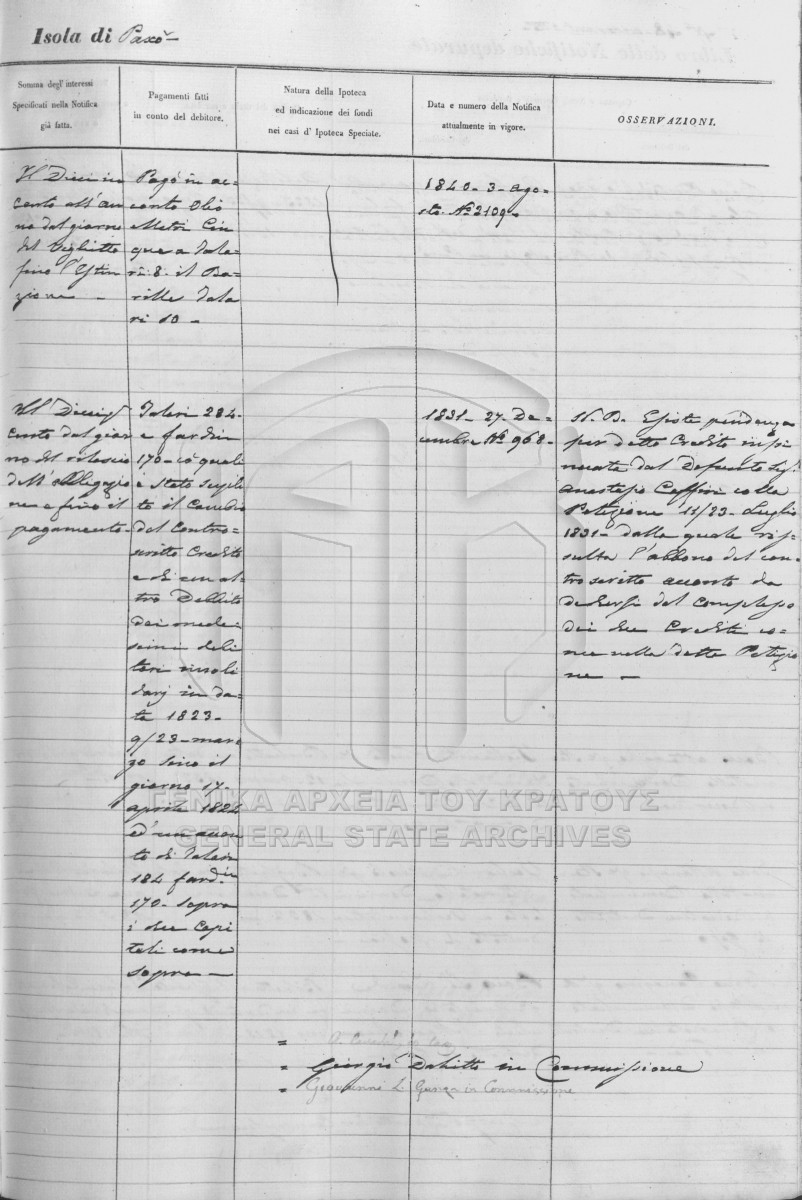 Isola di Paxò
Somma degl' interessi
Specificati nella Notifica
già fatta.
Pagamenti fatti
in conto del debitore.
Natura della Ipoteca
ed indicazione dei fondi
nei casi d' Ipoteca Speciale.
Data e numero della Notifica
attualmente in vigore.
OSSERVAZIONI.
Il Dieci in
cento all'an
no dal giorno
del Viglietto
fino l'Estin
zione -
Pagò in ac=
conto Olio
Metri Cin
que a Tala
ri 8. il Ba=
rille Tala
ri 10 -
1840 - 3 - ago=
sto. No 2109
Il Dieci p
cento dal gior
no del rilascio
dell'obbligazio
ne e fino il
pagamento -
Taleri 284 -
e fardini
170 - coi quali
è stato supli
to il
del contro=
scritto Credito
e di un al=
tro Debito
dei mede=
simi debi
tori insoli
darj in da=
ta 1823 -
9/23 - mar=
zo sino il
giorno 17
aprile 1824
ed un accon
to di Taleri
184 fardin
170 - sopra
i due Capi
tali come
sopra -
1831 - 27. De=
cembre No 968 -
N. B. Esiste pendenza
per detto Credito insi
nuata dal Defunto Sigr
Anastasio colla
Petizione 11/23 - Luglio
1831 - dalla quale ri=
sulta l'abbono del con
troscritto acconto da
del complesso
dei due Crediti co=
me nella detta Petizio
ne -
ΓΕΝΙΚΑ ΑΡΧΕΙΑ ΤΟΥ ΚΡΑΤΟΥΣ
GENERAL STATE ARCHIVES
Giorgio in Commissione
Giovanni in Commissione